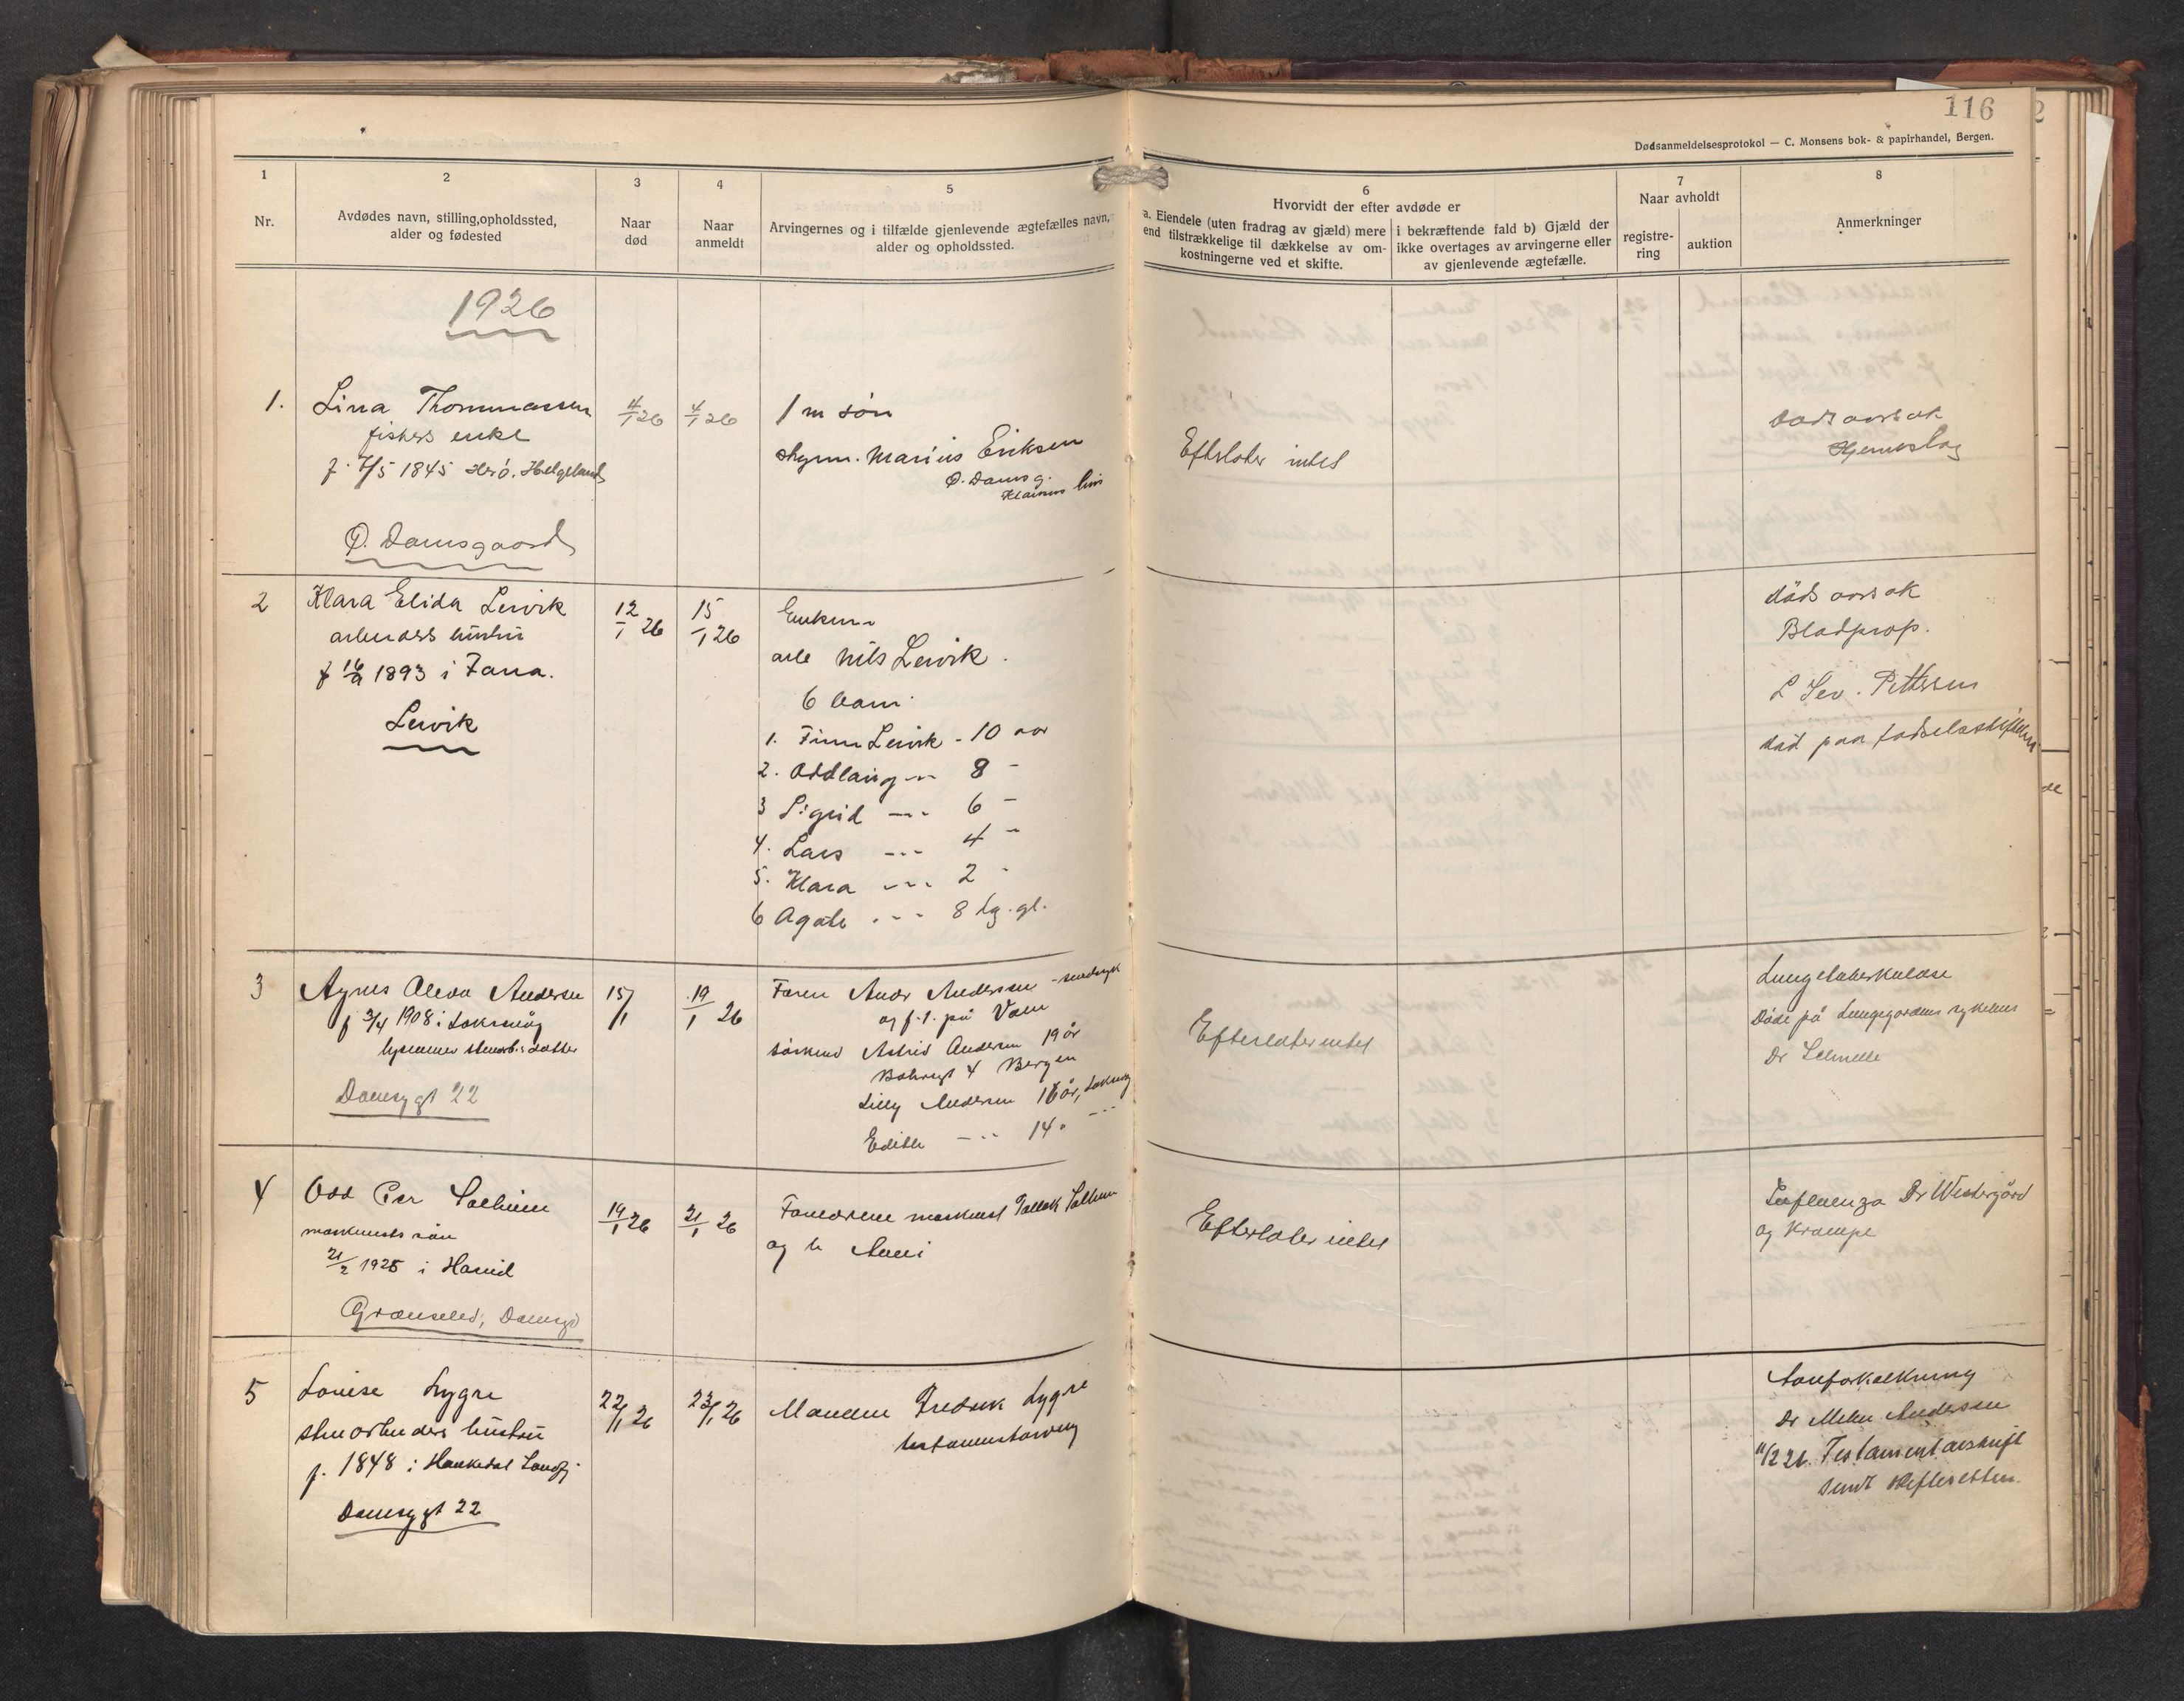 116
Dødsanmeldelsesprotokol — C. Monsens bok- & papirhandel, Bergen.
1
Nr.
2
Avdødes navn, stilling, opholdssted,
alder og fødested
3
Naar
død
4
Naar
anmeldt
5
Arvingernes og i tilfælde gjenlevende ægtefælles navn,
alder og opholdssted.
6
Hvorvidt der efter avdøde er
a. Eiendele (uten fradrag av gjæld) mere
end tilstrækkelige til dækkelse av om-
kostningerne ved et skifte.
i bekræftende fald b) Gjæld der
ikke overtages av arvingerne eller
av gjenlevende ægtefælle.
7
Naar avholdt
registre-
ring
auktion
8
Anmerkninger
1926
1.
Lina Thommassen
fiskers enke
f. 7/5 1845 Herö. Helgeland
Ø. Damsgaard
4/1 26
4/1 26
1 m søn
Marius Eriksen
Ø. Damsg.
Efterlater intet
dødsaarsak
Hjerneslag
2
Klara Elida Leivik
arbeiders hustru
f 16/9 1893 i Fana.
Leivik
12/1 26
15/1 26
Enkem.
arb Nils Leivik.
6 barn
1. Finn Leivik - 10 aar
2. Oddlaug -"- 8 -
3 Sigrid -"- 6 -
4. Lars -"- 4 -
5. Klara -"- 2 -
6 Agate -"- 8 dg. gl.
dødsaarsak
Blodprop.
L Sev. Pettersen
død paa fødselsstiftelsen
3
Agnes Andersen
f 3/4 1908 i Laksevåg
datter
Damsggt 22
15/1
19/1 26
Faren Andr Andersen - sindsyk
og f. t. på Voss
søskend Astrid Andersen 19 år
4 Bergen
Lilly Andersen 16 år, Laksevåg
Edith -"- 14 " -"-
Efterlater intet
Lungetuberkulose
Døde på Lungegardens sykehus
Dr
4
Odd Per Solheim
maskinists søn
21/2 1925 i Hareid
Grænseled, Damsgd
19/1 26
21/1 26
Forældrene maskinist Tollak Solheim
og h Anni
Efterlater intet
Influenza Dr Westergård
og Krampe
5
Louise Lygre
stenarbeiders hustru
f. 1848 i Haukedal Søndfj
Damsggt 22
22/1 26
23/1 26
Manden Fredrik Lygre
testamentarving
Aareforkalkning
Dr Andersen
11/2 26. Testamentavskrift
sendt skifteretten.